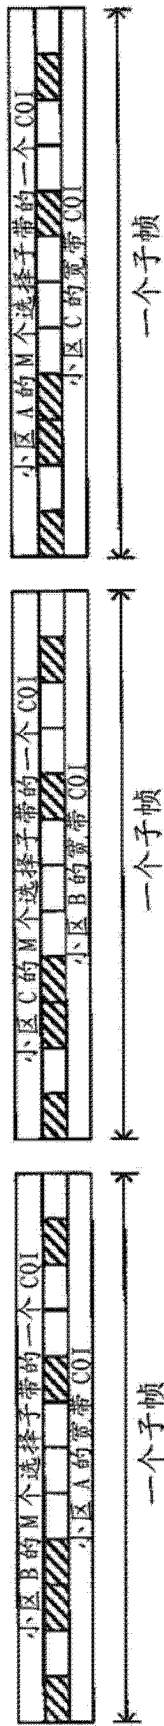 小区B的M个选择子带的一个CQI
小区A的宽带CQI
一个子帧
小区C的M个选择子带的一个CQI
小区B的宽带CQI
一个子帧
小区A的M个选择子带的一个CQI
小区C的宽带CQI
一个子帧